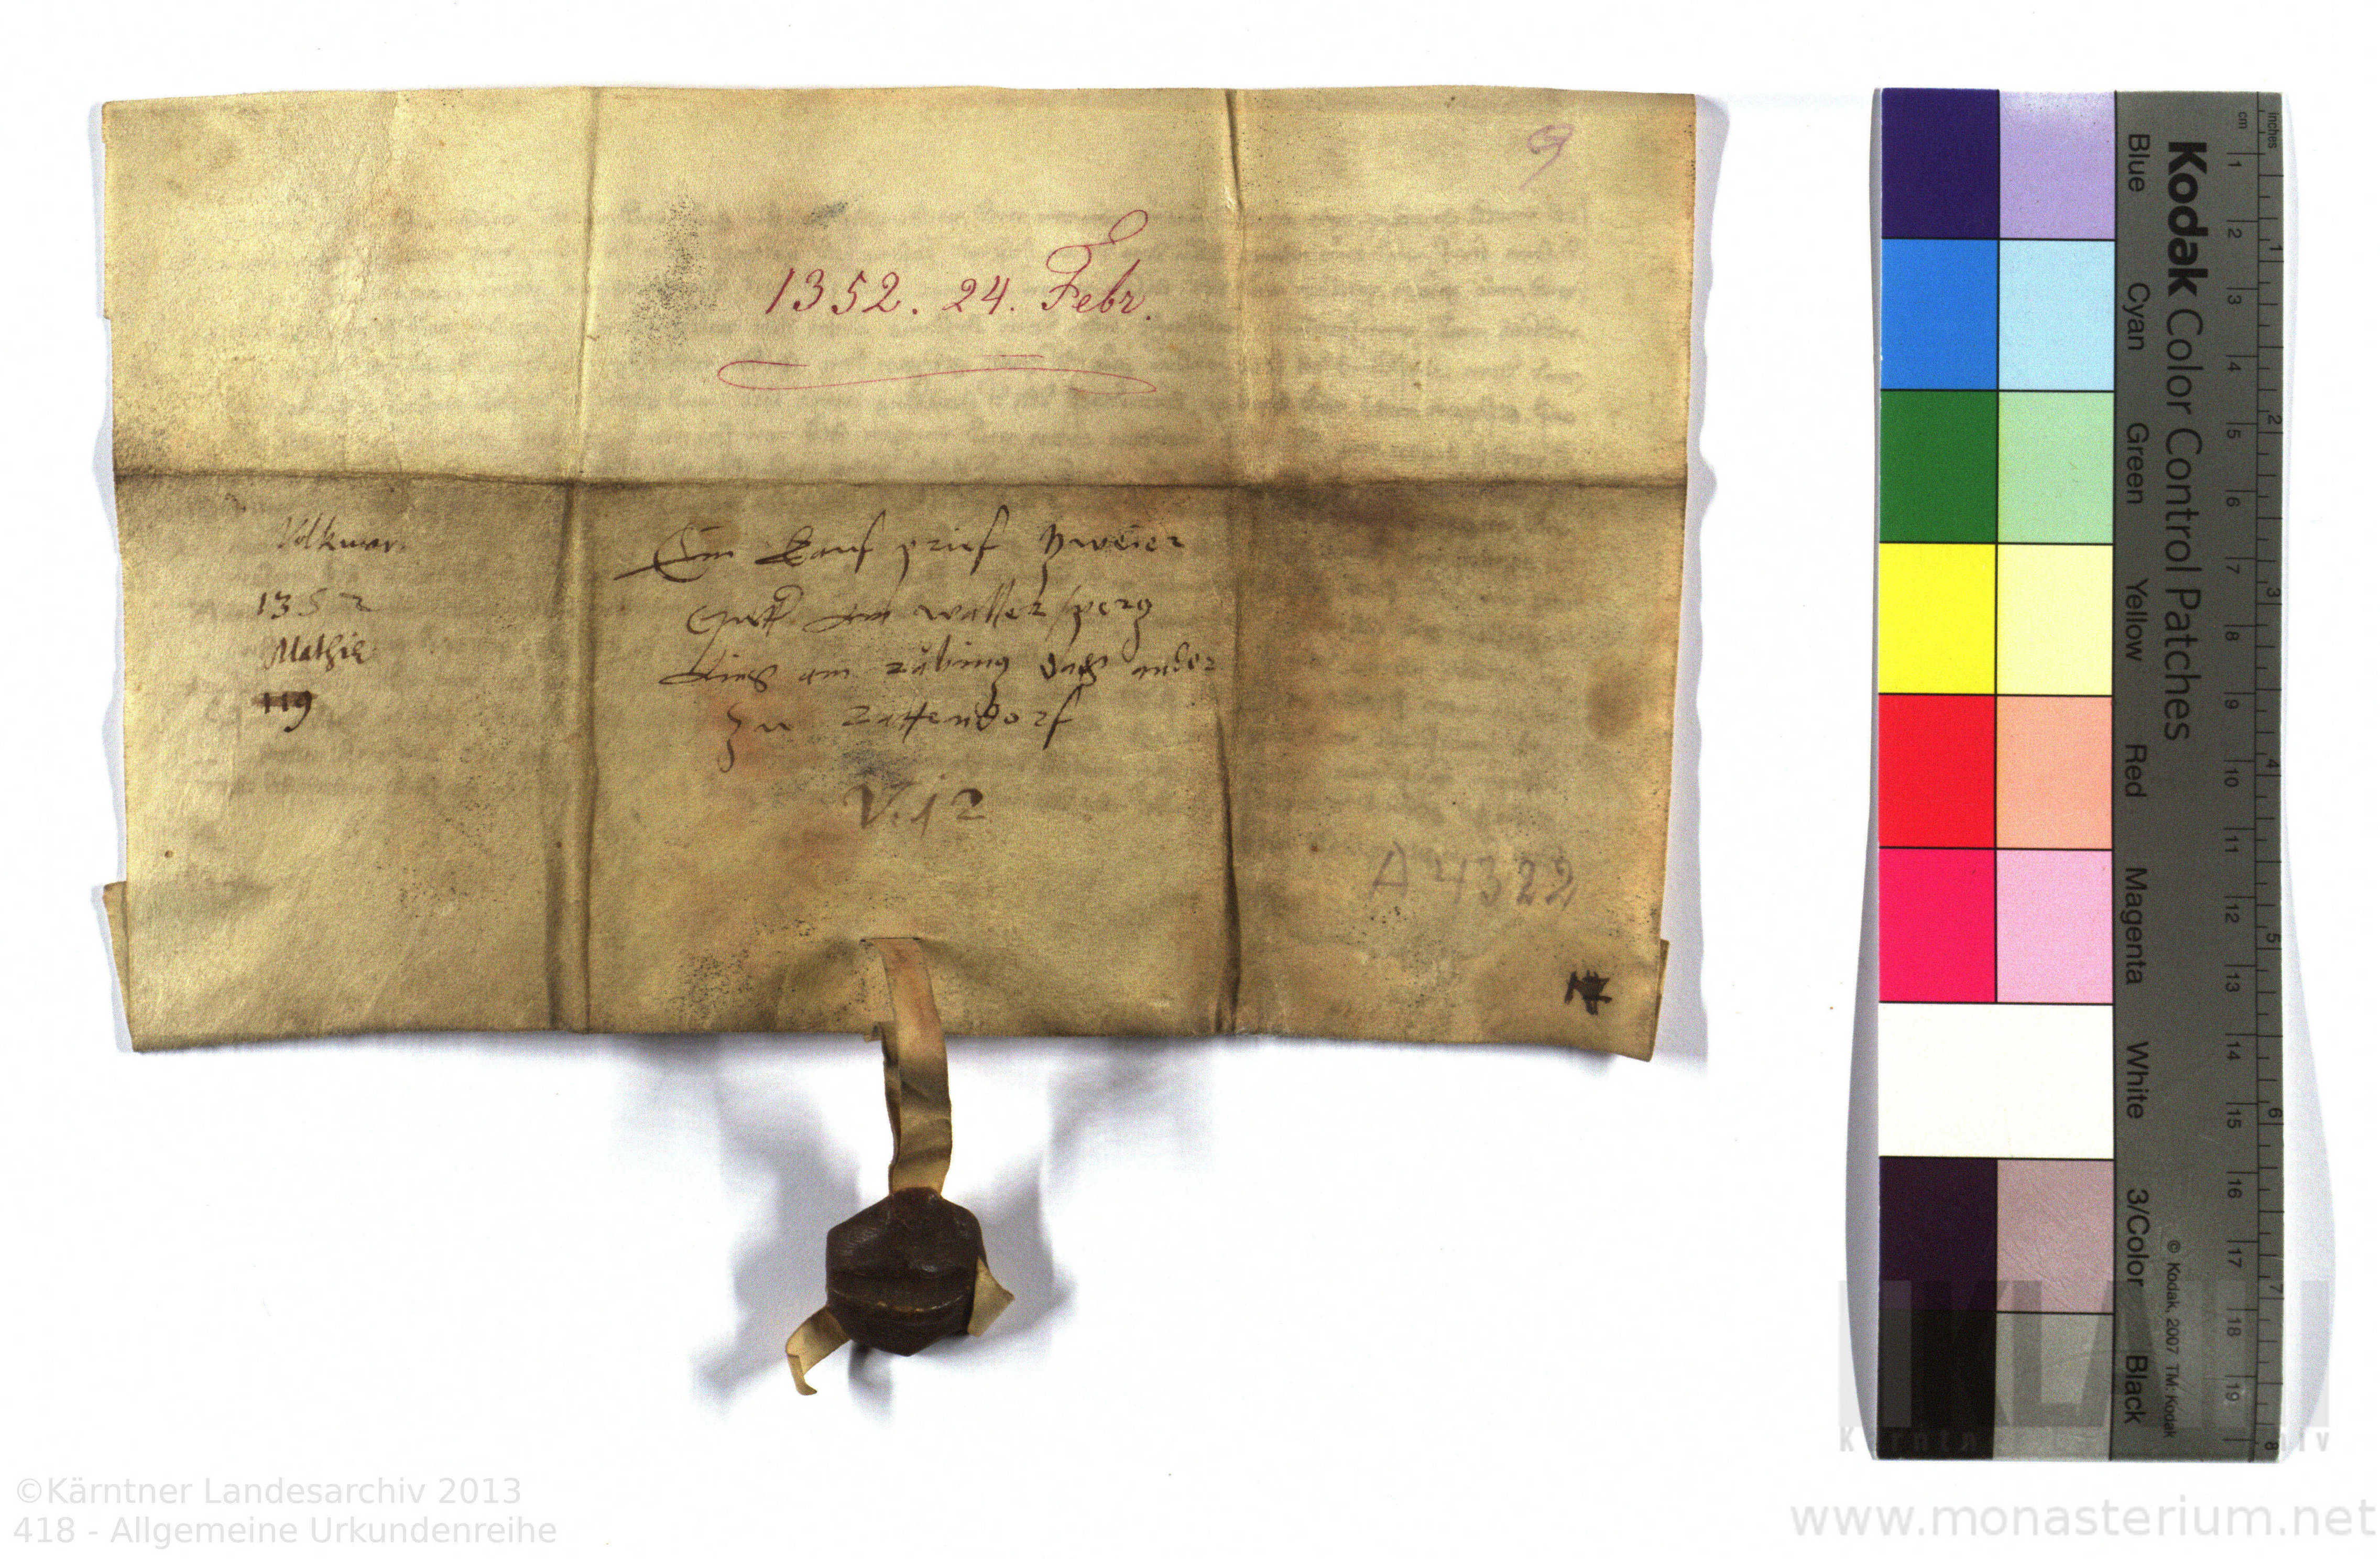 9
1352. 24. Febr.
Volkmar.
1352
Mathie
119
Ein Kauf prief Zweier
am wallersperg
Ains am räbing das ander
zu rattendorf
V. 12
A 4322
Kodak Color Control Patches
Blue Cyan Green Yellow Red Magenta White 3/Color Black
© Kodak, 2007 TM: Kodak
inches 1 2 3 4 5 6 7 8
cm 1 2 3 4 5 6 7 8 9 10 11 12 13 14 15 16 17 18 19
©Kärntner Landesarchiv 2013
418 - Allgemeine Urkundenreihe
www.monasterium.net